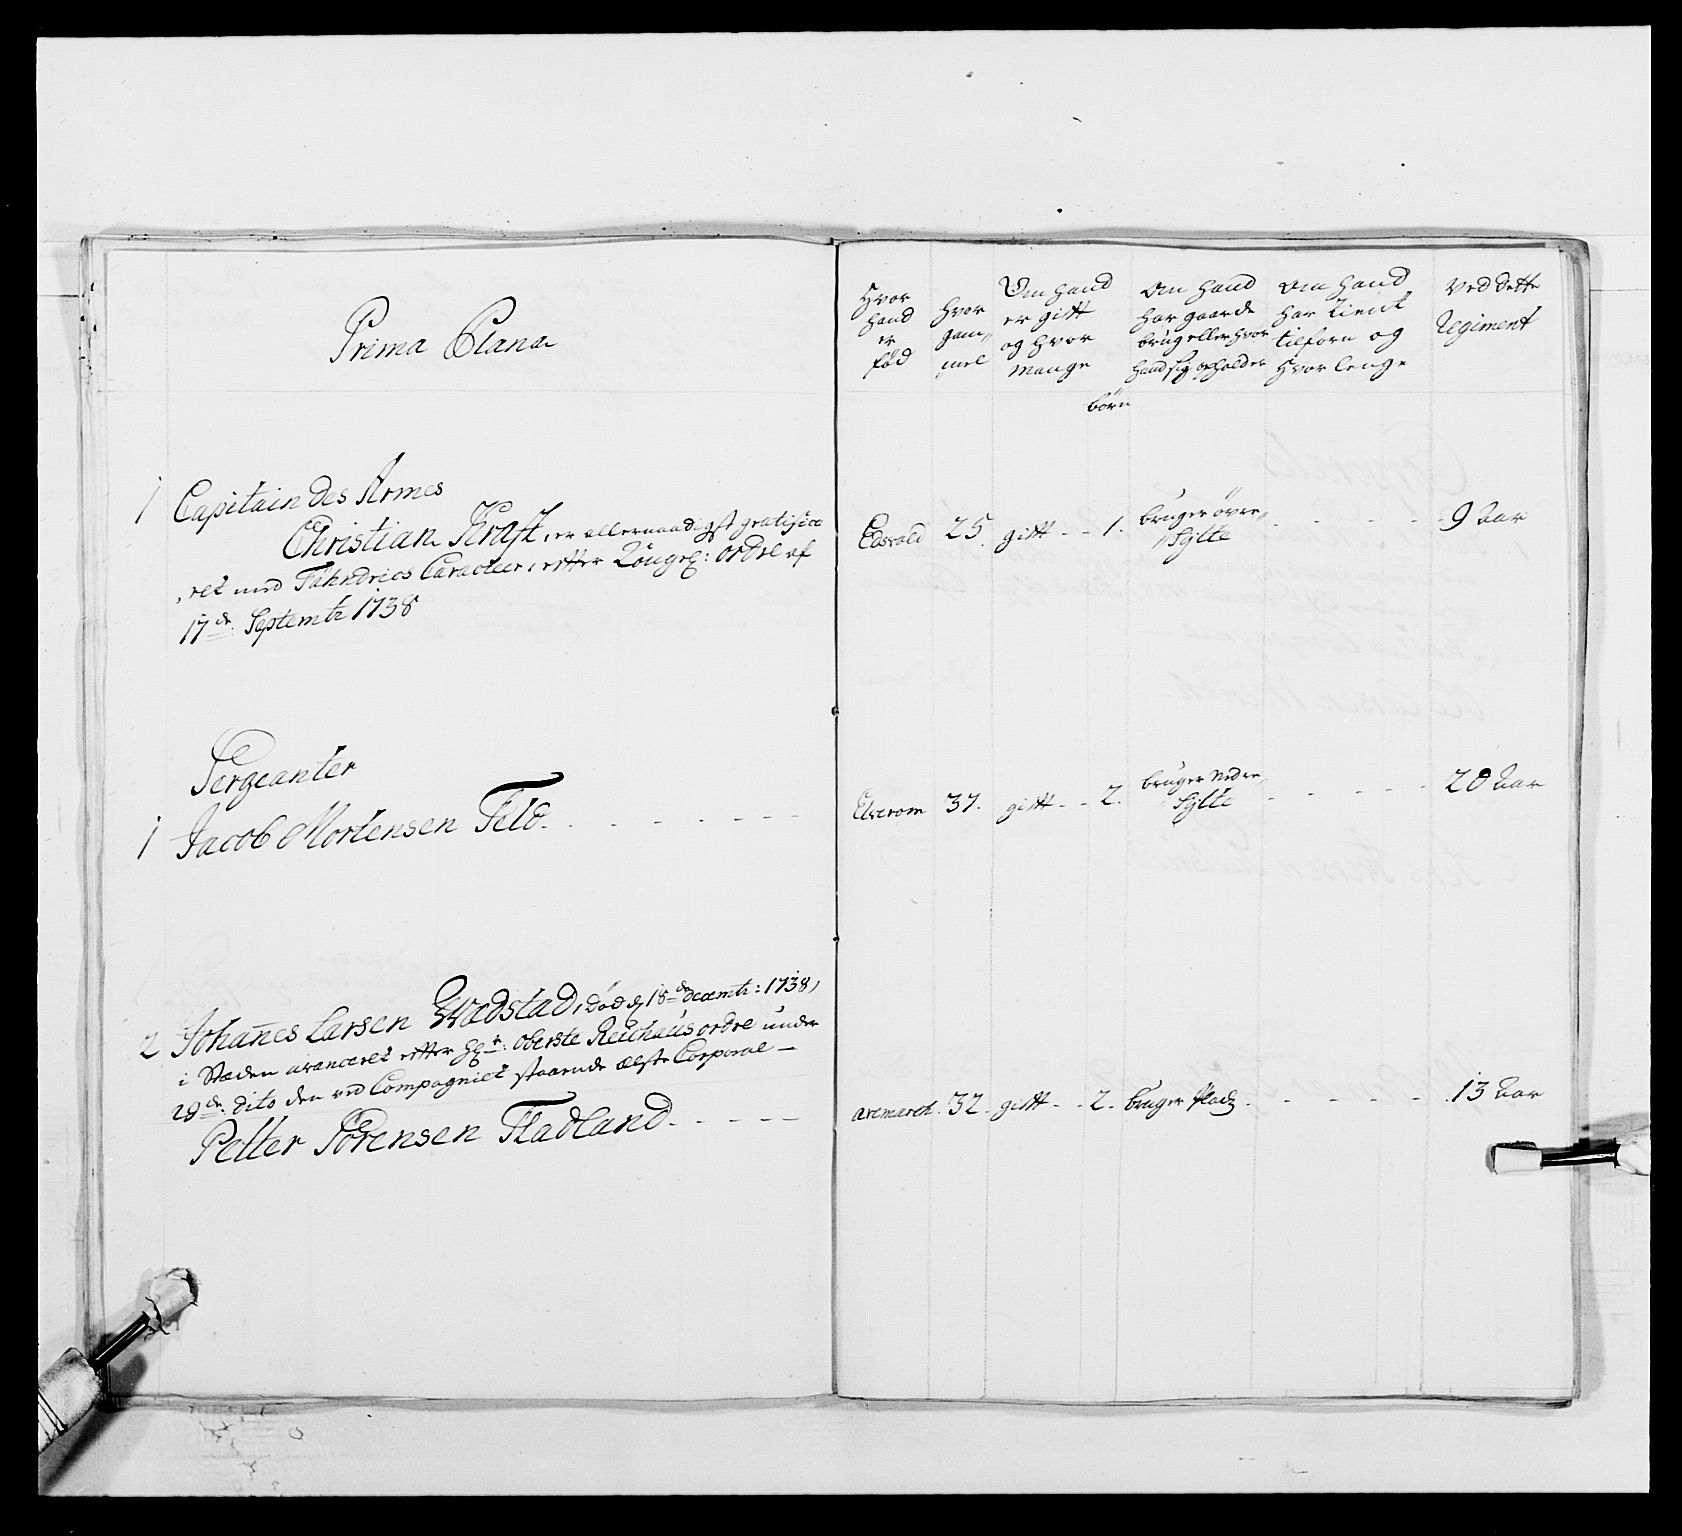 Prima Plana
1 Capitain des Armes
Christian Kraft, er allernaadigst gratifice
ret med Fähndrics Caracteer, efter Kongel: ordre af
17de: Septembr 1738
Sergeanter
1 Jacob Mortensen Feld
2 Johan̄es Larsen Wadstad, død d 18de decembr: 1738,
i Stæden avanceret efter Hr: oberste Reichaus ordre under
29de: dito den ved Compagniet staaende ælste Corporal
Petter Sörensen Fladland
Hvor
hand
er
fød
hvor
gam„
„mel
Om hand
er gift
og hvor
mange
børn
Om hand
har gaarde
brug eller hvor
hand sig opholder
Om hand
har tient
tilforn og
hvor lenge
Ved dette
Regiment
Edsvold 25. gift - - 1. bruger övre„ 9 aar
„Sylte
Elverom 37. gift - - 2. bruger Nedre„ 20 aar
„Sylte
aremarck. 32. gift - - 2. bruger Plads 13 aar